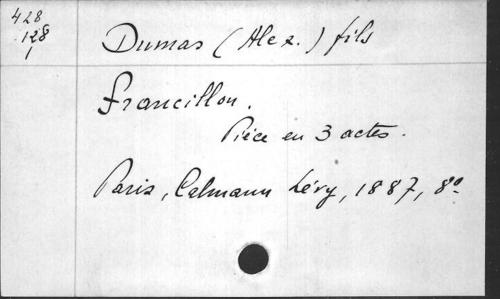 428
128
1
Dumas (Alex.) fils
Francillon.
Pièce en 3 actes.
Paris, Calmann Lévy, 1887, 8º